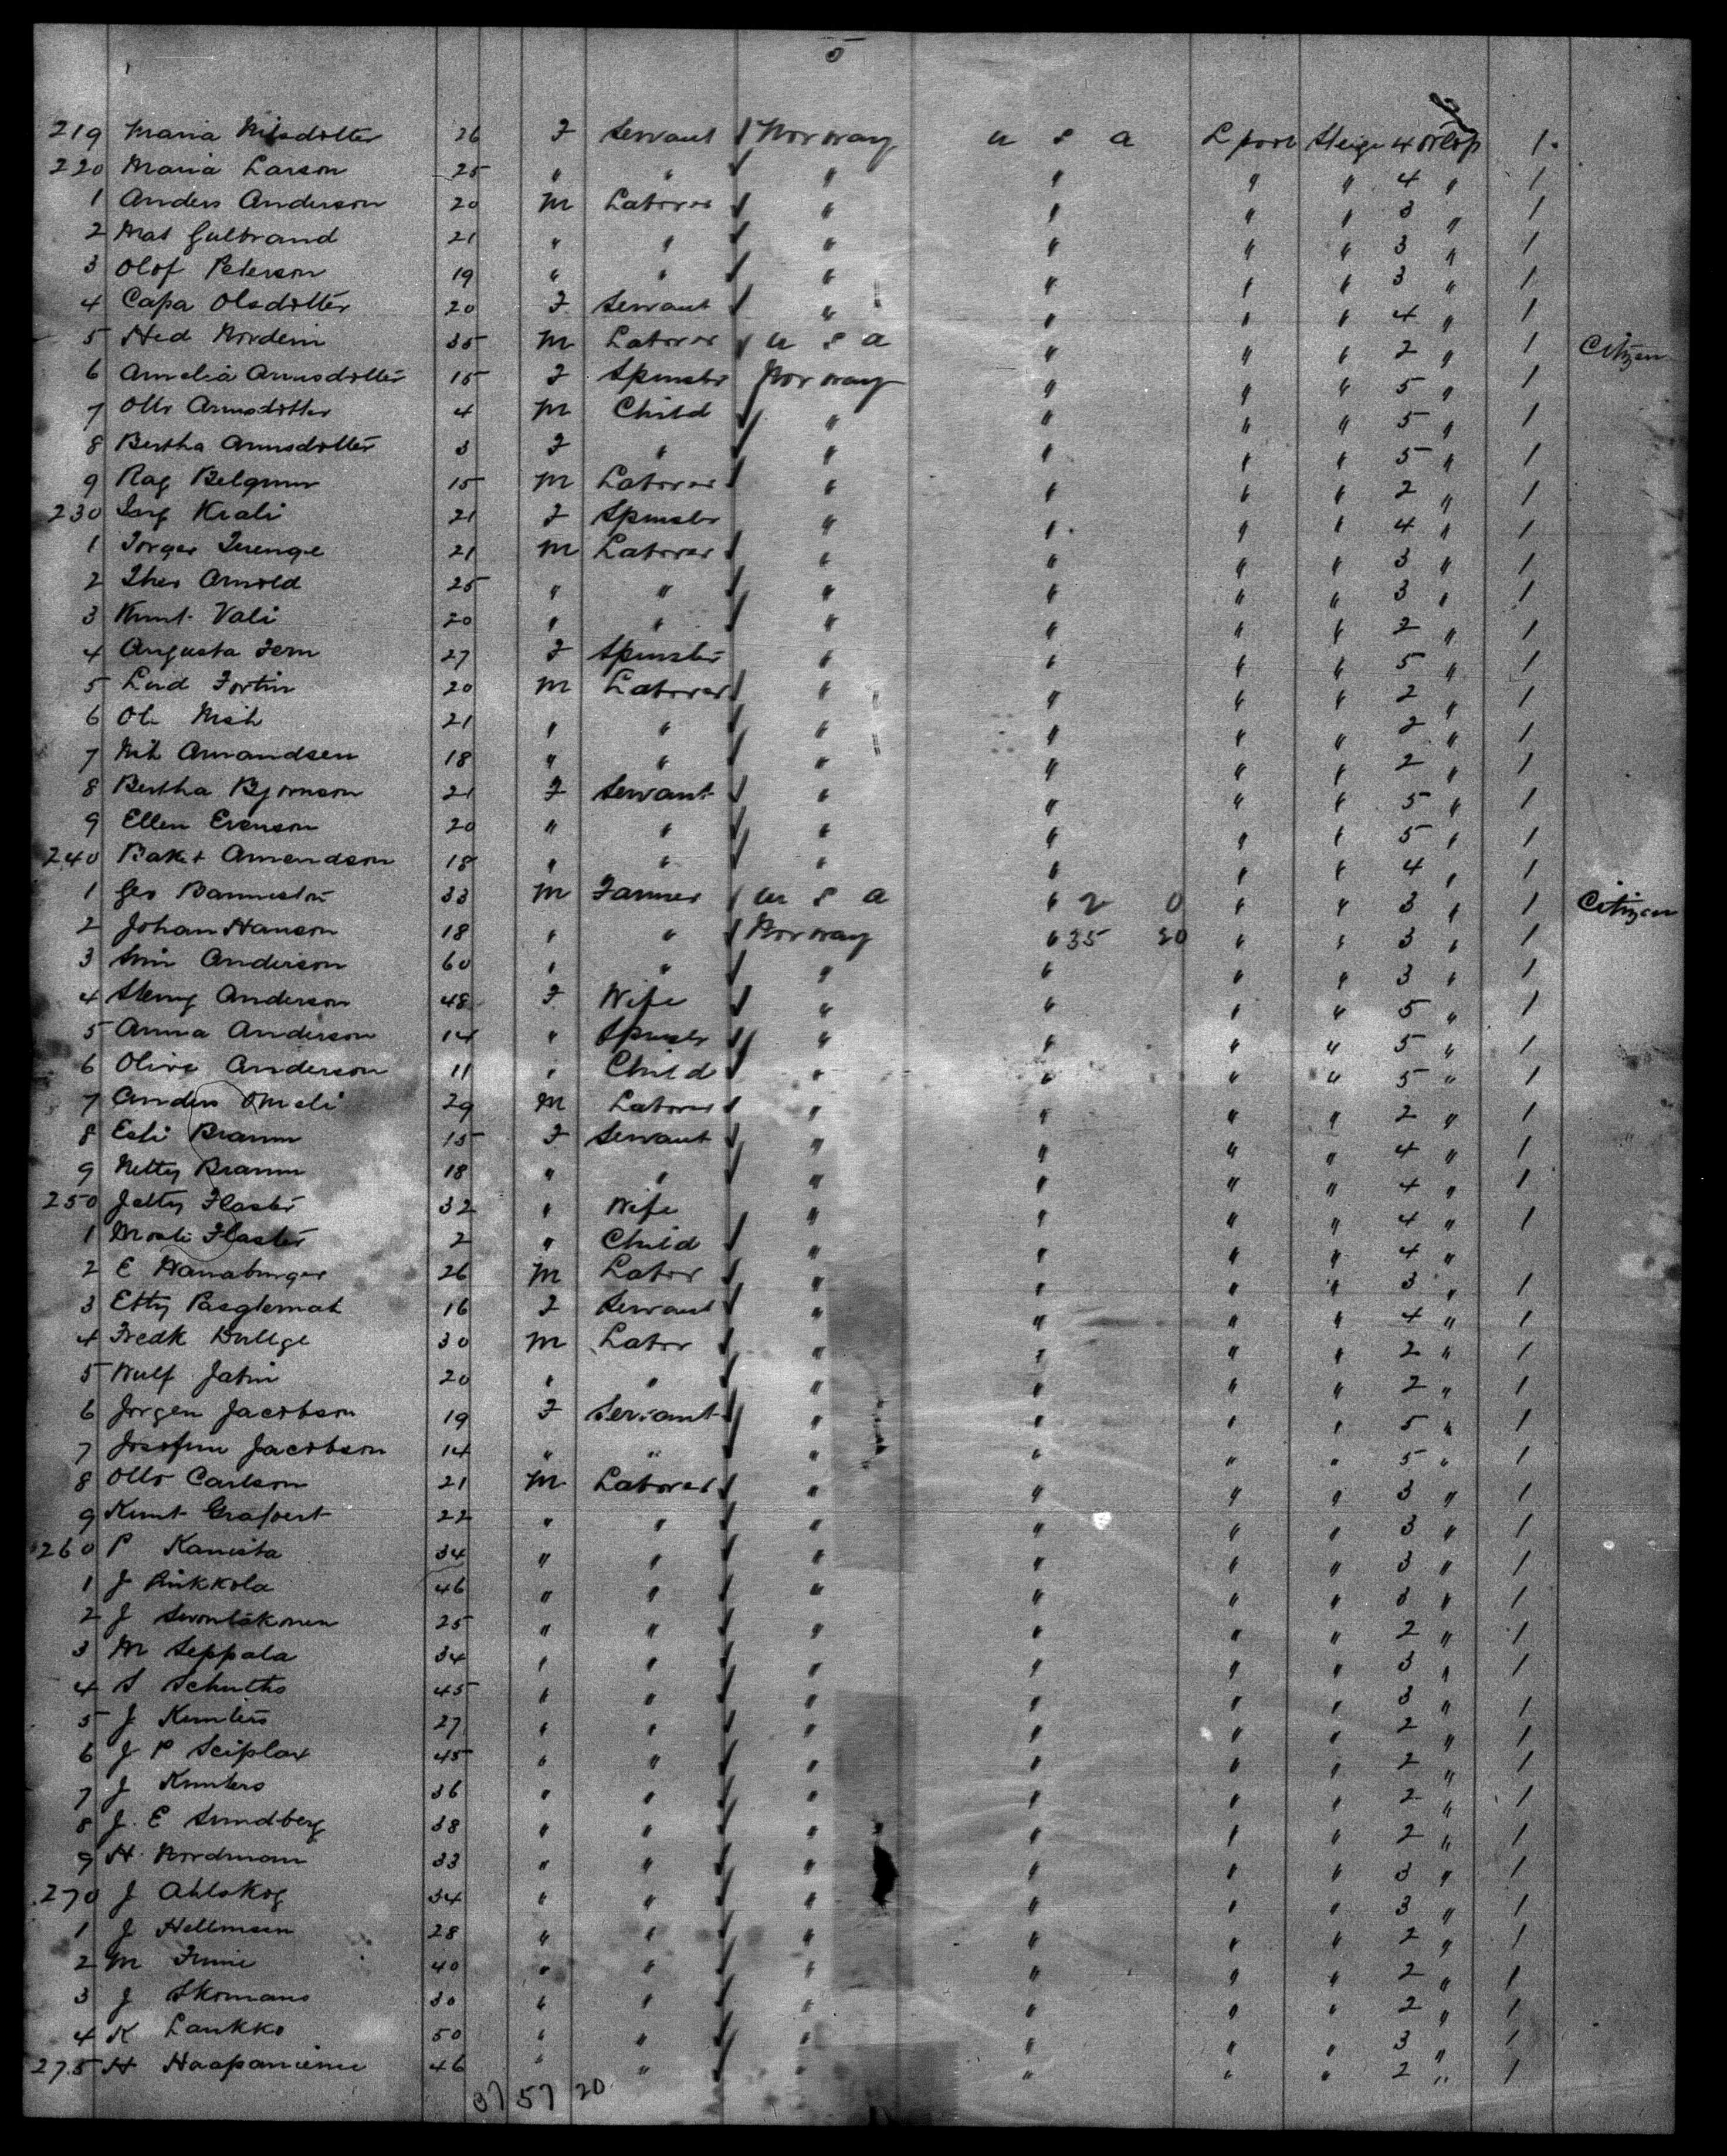 5
219 Maria Nilsdotter 26 F Servant Norway U S A Lpool Steige 4 Orlop 1
220 Maria Larson 25 " " " " " " 4 " 1
1 Anders Anderson 20 M Laborer " " " " 3 " 1
2 Mat Gulbrand 21 " " " " " " 3 " 1
3 Olof Peterson 19 " " " " " " 3 " 1
4 Capa Olsdotter 20 F Servant " " " " 4 " 1
5 Ned Nordein 35 M Laborer U S A " " " 2 " 1 Citizen
6 Amelia Arnusdotter 15 F Spinster Norway " " " 5 " 1
7 Otto Arnusdotter 4 M Child " " " " 5 " 1
8 Bertha Arnusdotter 3 F " " " " " 5 " 1
9 Rag Belgmur 15 M Laborer " " " " 2 " 1
230 Krali 21 F Spinster " " " " 4 " 1
1 Torger 21 M Laborer " " " " 3 " 1
2 Theo Arnold 25 " " " " " " 3 " 1
3 Knut Vali 20 " " " " " " 2 " 1
4 Augusta Fern 27 F Spinster " " " " 5 " 1
5 Lind Fortin 20 M Laborer " " " " 2 " 1
6 Ole 21 " " " " " " 2 " 1
7 Amandsen 18 " " " " " " 2 " 1
8 Bertha Bjornson 21 F Servant " " " " 5 " 1
9 Ellen Evenson 20 " " " " " " 5 " 1
240 Amendson 18 " " " " " " 4 " 1
1 Geo Bannister 33 M Farmer U S A " 2 0 " " 3 " 1 Citizen
2 Johan Hanson 18 " " Norway " 35 20 " " 3 " 1
3 Anderson 60 " " " " " " 3 " 1
4 Anderson 48 F Wife " " " " 5 " 1
5 Anna Anderson 14 " Spinster " " " " 5 " 1
6 Olive Anderson 11 " Child " " " " 5 " 1
7 Anders Omeli 29 M Laborer " " " " 2 " 1
8 Esti Bramm 15 F Servant " " " " 4 " 1
9 Netty Bramm 18 " " " " " " 4 " 1
250 Jetty Flaster 32 " Wife " " " " 4 " 1
1 Flaster 2 " Child " " " " 4 "
2 E Hanaburger 26 M Labor " " " " 3 " 1
3 Etty Pasglemah 16 F Servant " " " " 4 " 1
4 Fredk Dullge 30 M Labor " " " " 2 " 1
5 Wulf Jatin 20 " " " " " " 2 " 1
6 Jorgen Jacobson 19 F Servant " " " " 5 " 1
7 Josefine Jacobson 14 " " " " " " 5 " 1
8 Otto Carlson 21 M Laborer " " " " 3 " 1
9 Knut Grafvert 22 " " " " " " 3 " 1
260 P Kanista 34 " " " " " " 3 " 1
1 J Rinkkola 46 " " " " " " 3 " 1
2 J 25 " " " " " " 2 " 1
3 M Seppala 34 " " " " " " 3 " 1
4 S Schultho 45 " " " " " " 3 " 1
5 J Kemlers 27 " " " " " " 2 " 1
6 J P Sciplax 45 " " " " " " 2 " 1
7 J Knuters 36 " " " " " " 2 " 1
8 J. E Sundberg 38 " " " " " " 2 " 1
9 H. Nordmann 33 " " " " " " 3 " 1
270 J Ahlskog 34 " " " " " " 3 " 1
1 J Hellman 28 " " " " " " 2 " 1
2 M Finne 40 " " " " " " 2 " 1
3 J Skomans 30 " " " " " " 2 " 1
4 K Laukko 50 " " " " " " 3 " 1
275 H Haapaniemi 46 " " " " " " 2 " 1
37 57 20